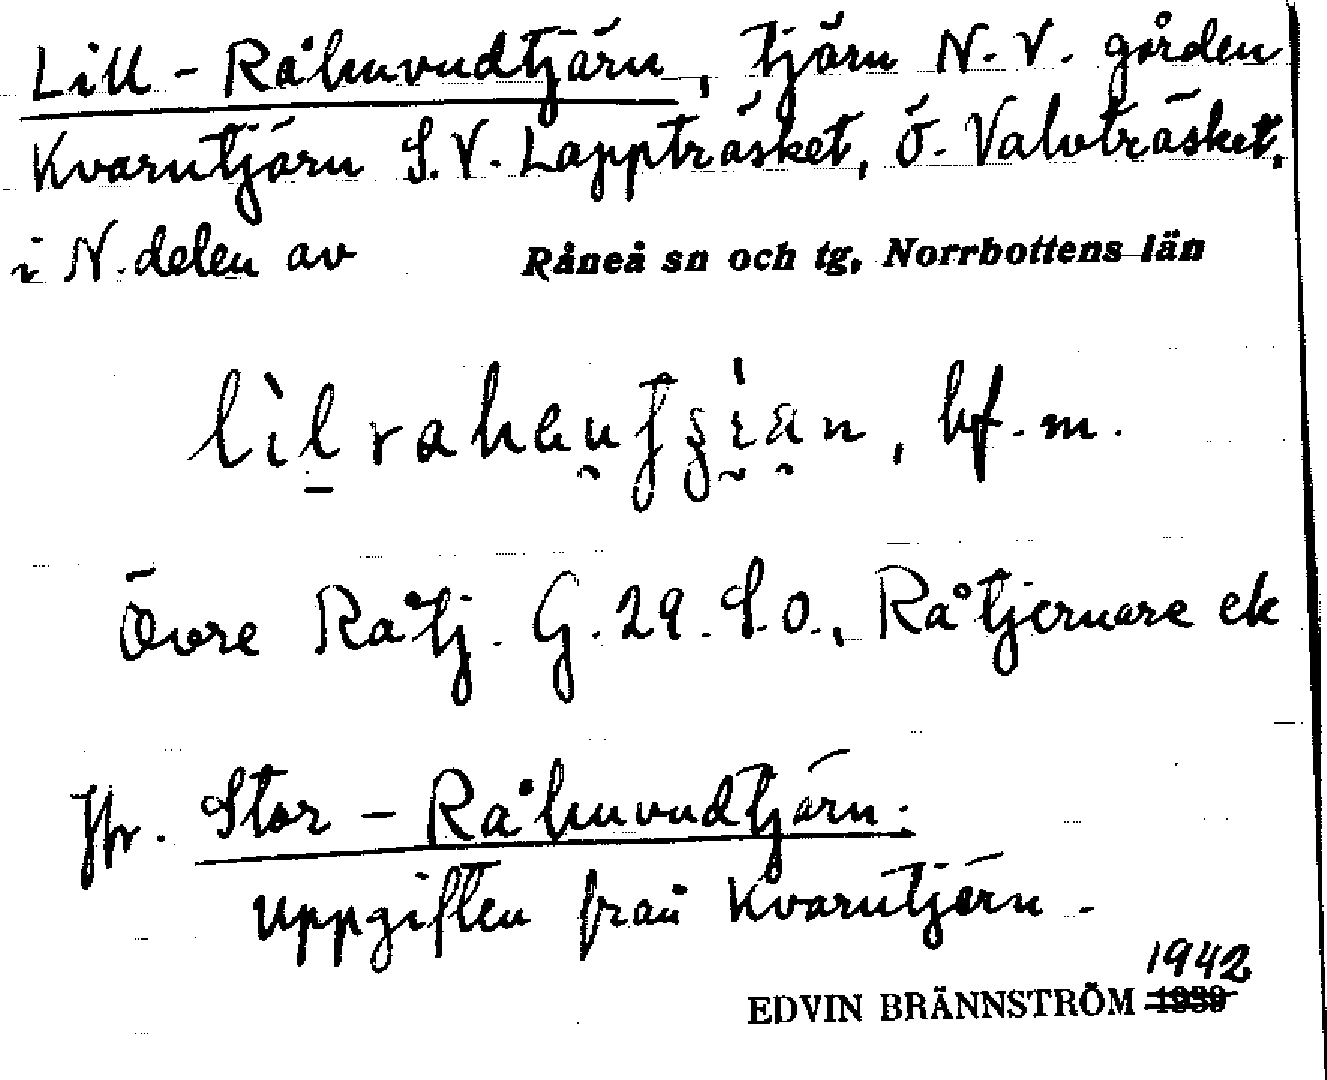 Lill-Råhuvudtjärn, tjärn N.V. gården
Kvarntjärn S.V. Lappträsket, Ö. Valvträsket,
i N. delen av Råneå sn och tg, Norrbottens län
bf. m.
Övre Råtj. G. 29. S.O., Råtjernare ek
Jfr. Stor-Råhuvudtjärn.
Uppgiften från Kvarntjärn.
1942
EDVIN BRÄNNSTRÖM 1939